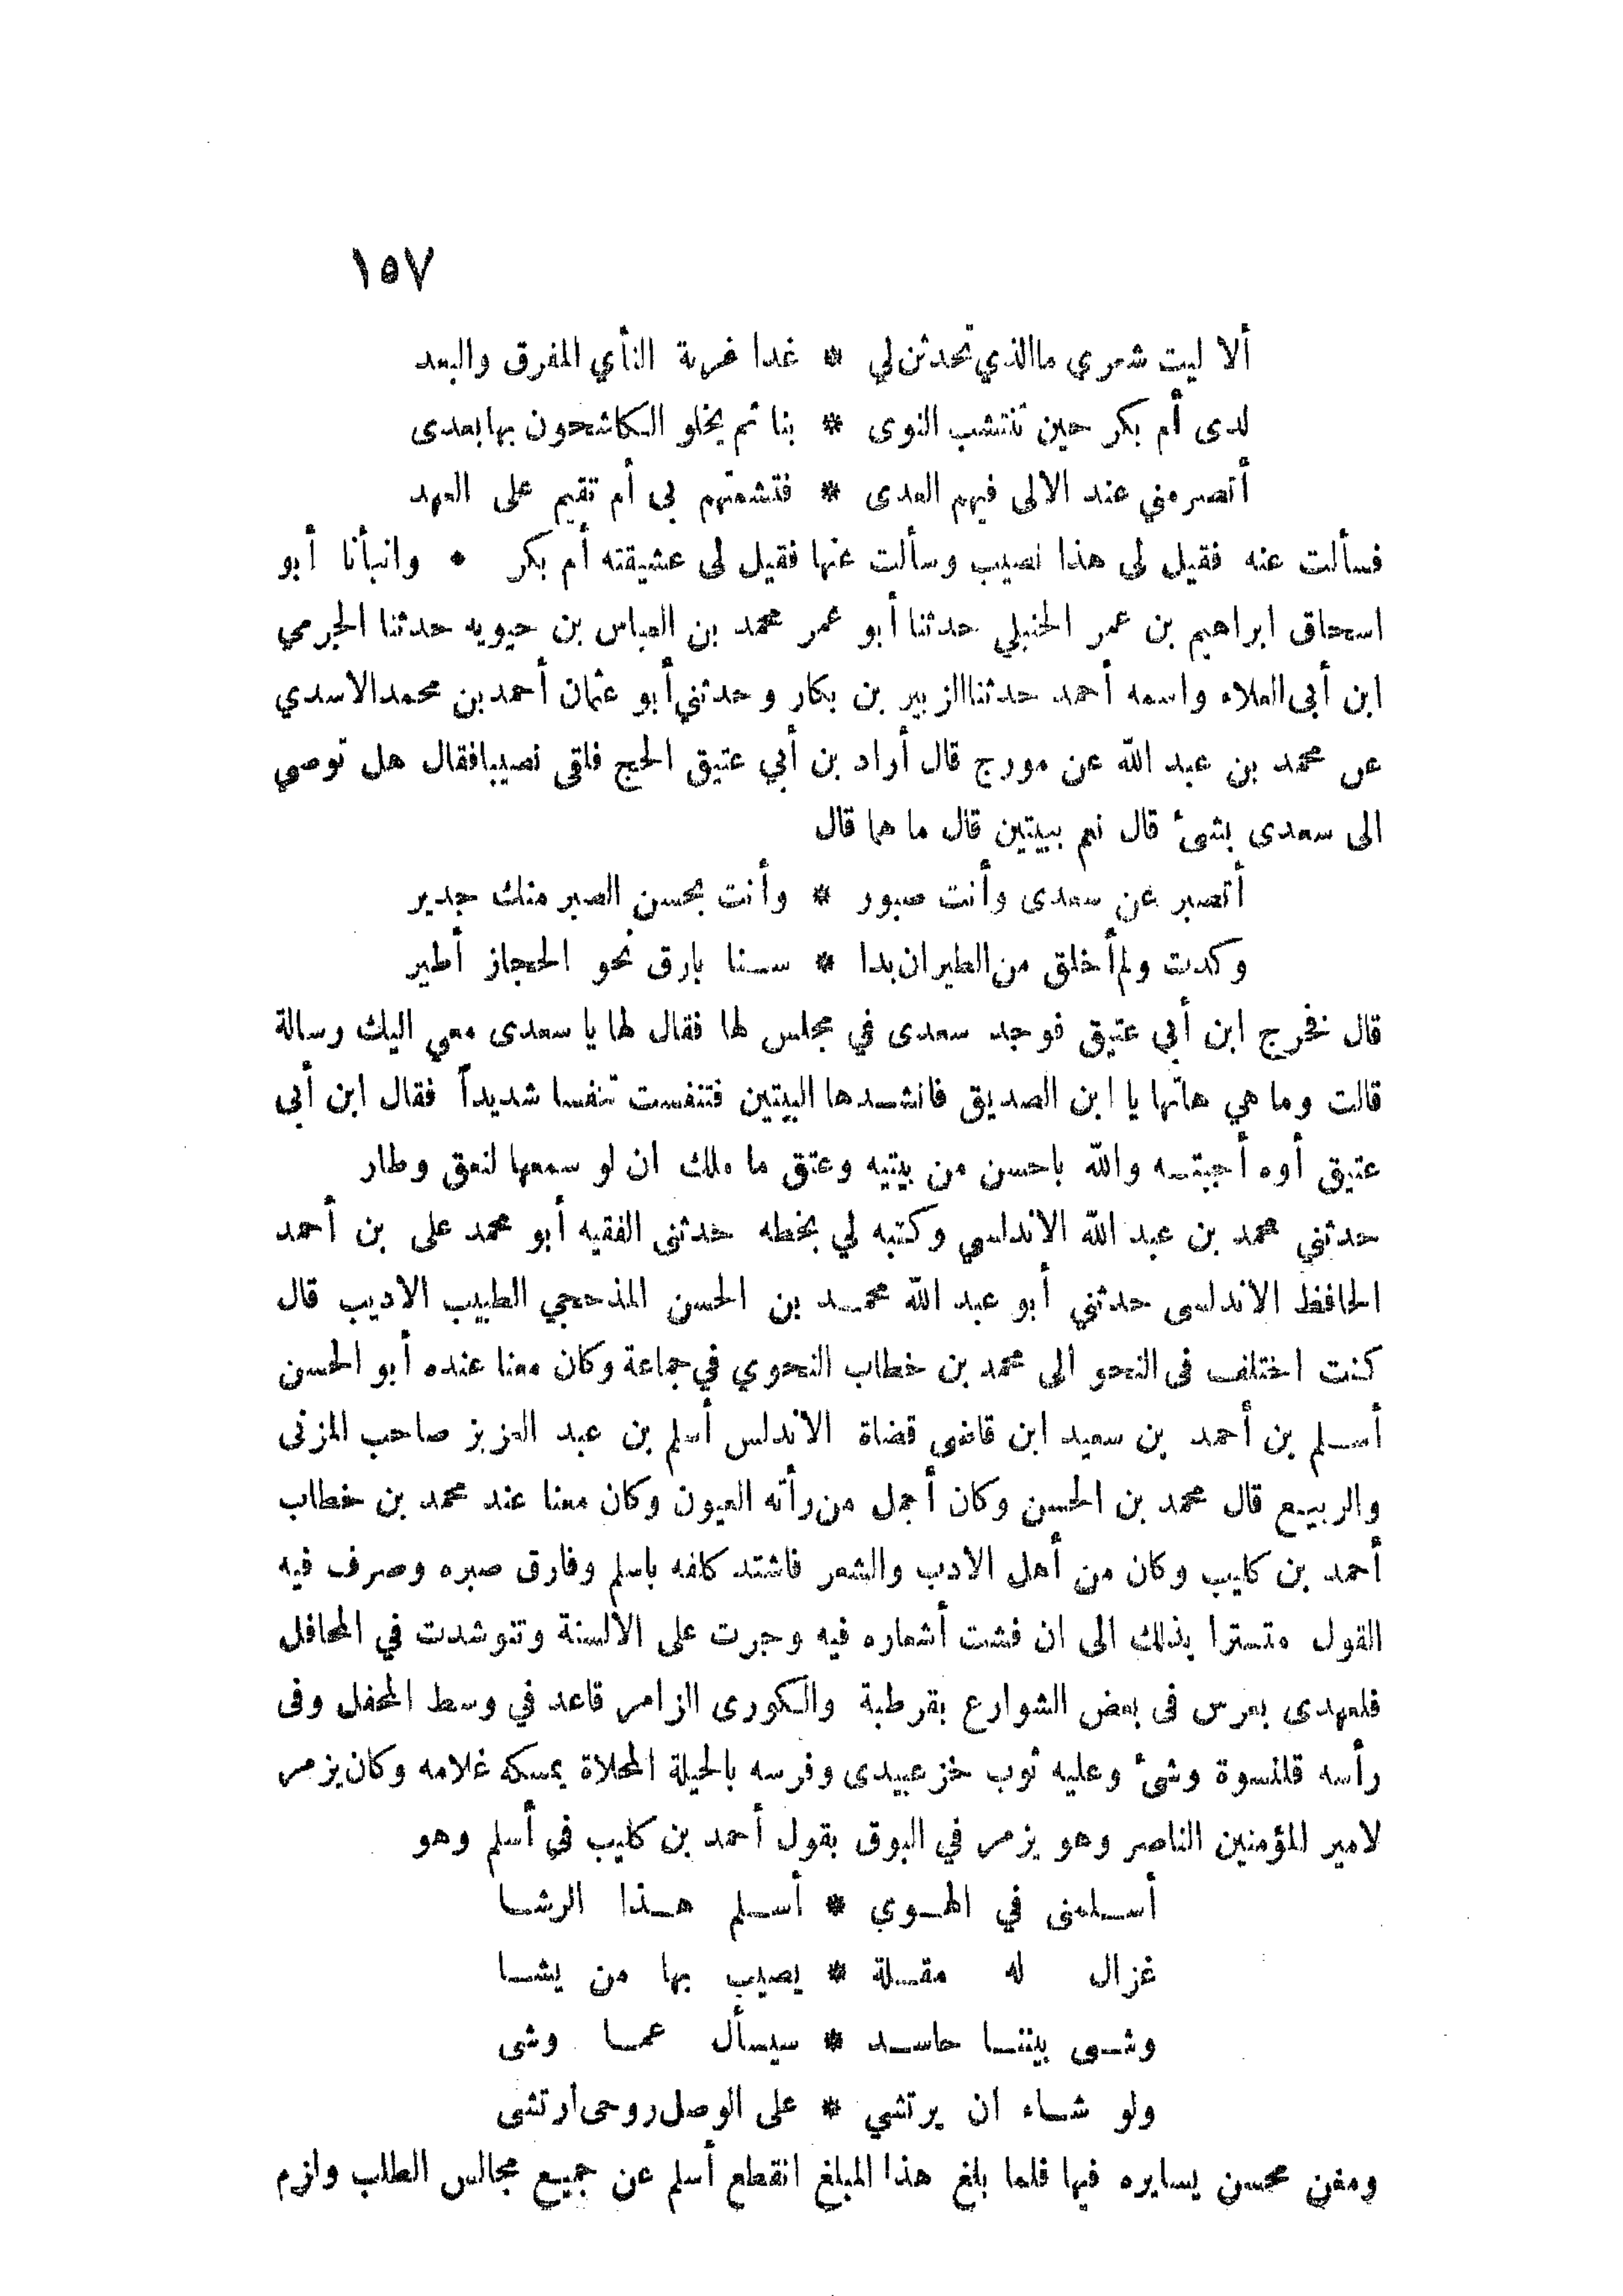 ١٥٧
ألا ليت شعري ماالذي تحدثن لي * غدا غربة النأي المفرق والبعد
لدى أم بكر حين تنتشب النوى * بنا ثم يخلو الكاشحون بها بعدى
أتصرمني عند الالى فيهم العدى * فتشمتهم بى أم تقيم على العهد
فسألت عنه فقيل لى هذا نصيب وسألت عنها فقيل لى عشيقته أم بكر • وانبأنا أبو
اسحاق ابراهيم بن عمر الحنبلي حدثنا أبو عمر محمد بن العباس بن حيويه حدثنا الجرمي
ابن أبى العلاء واسمه أحمد حدثنا الزبير بن بكار وحدثني أبو عثمان أحمد بن محمد الاسدي
عن محمد بن عبد الله عن مورج قال أراد بن أبي عتيق الحج فلقى نصيبا فقال هل توصى
الى سعدى بشئ قال نعم ببيتين قال ما هما قال
أتصبر عن سعدى وأنت صبور * وأنت بحسن الصبر منك جدير
وكدت ولم أخلق من الطير ان بدا * سنا بارق نحو الحجاز أطير
قال فخرج ابن أبي عتيق فوجد سعدى في مجلس لها فقال لها يا سعدى معي اليك رسالة
قالت وما هي هاتها يا ابن الصديق فانشدها البيتين فتنفست تنفسا شديداً فقال ابن أبى
عتيق أوه أجبته والله باحسن من بيتيه وعتق ما ملك ان لو سمعها لنعق وطار
حدثني محمد بن عبد الله الاندلسي وكتبه لي بخطه حدثنى الفقيه أبو محمد على بن أحمد
الحافظ الاندلسى حدثني أبو عبد الله محمد بن الحسن المذحجي الطبيب الاديب قال
كنت اختلف فى النحو الى محمد بن خطاب النحوي في جماعة وكان معنا عنده أبو الحسن
أسلم بن أحمد بن سعيد ابن قاضى قضاة الاندلس أسلم بن عبد العزيز صاحب المزنى
والربيع قال محمد بن الحسن وكان أجمل من رأته العيون وكان معنا عند محمد بن خطاب
أحمد بن كليب وكان من أهل الادب والشعر فاشتد كلفه باسلم وفارق صبره وصرف فيه
القول متسترا بذلك الى ان فشت أشعاره فيه وجرت على الالسنة وتنوشدت في المحافل
فلعهدى بعرس فى بعض الشوارع بقرطبة والكورى الزامر قاعد في وسط المحفل وفى
رأسه قلنسوة وشئ وعليه ثوب خز عبيدى وفرسه بالحيلة المحلاة يمسكه غلامه وكان يزمر
لامير المؤمنين الناصر وهو يزمر في البوق بقول أحمد بن كليب في أسلم وهو
أسلمنى في الهوي * أسلم هذا الرشا
غزال له مقلة * يصيب بها من يشا
وشى بيننا حاسد * سيسأل عما وشى
ولو شاء ان يرتشي * على الوصل روحى ارتشى
ومغن محسن يسايره فيها فلما بلغ هذا المبلغ انقطع أسلم عن جميع مجالس الطلب ولزم